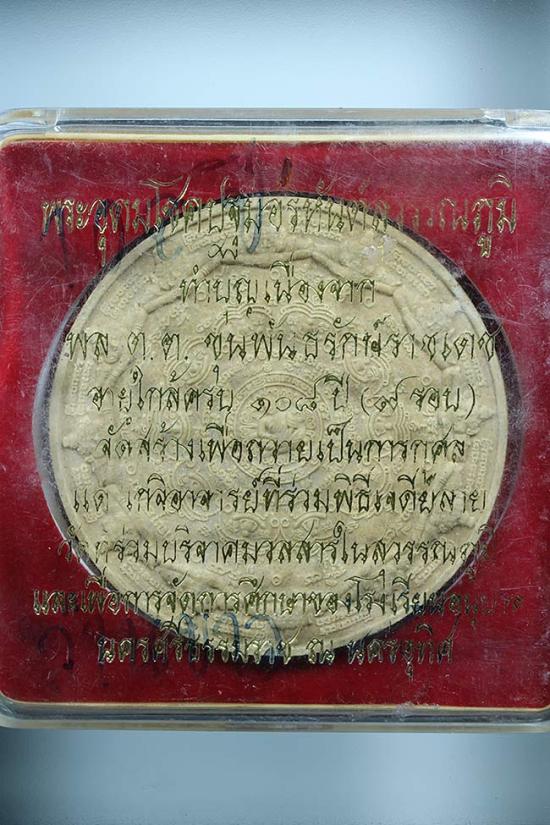 พระอุดมโชคปฐมอรหันต์สุวรรณภูมิ
ทำบุญเนื่องจาก
พล ต.ต. ขุนพันธรักษ์ราชเดช
อายุใกล้ครบ ๑๐๘ ปี (๙ รอบ)
จัดสร้างเพื่อถวายเป็นการกุศล
แด่ เกจิอาจารย์ที่ร่วมพิธีเจดีย์ลาย
ร่วมบริจาคมวลสารในสุวรรณภูมิ
และเพื่อการจัดการศึกษาของโรงเรียนอนุบาล
นครศรีธรรมราช ณ นครอุทิศ